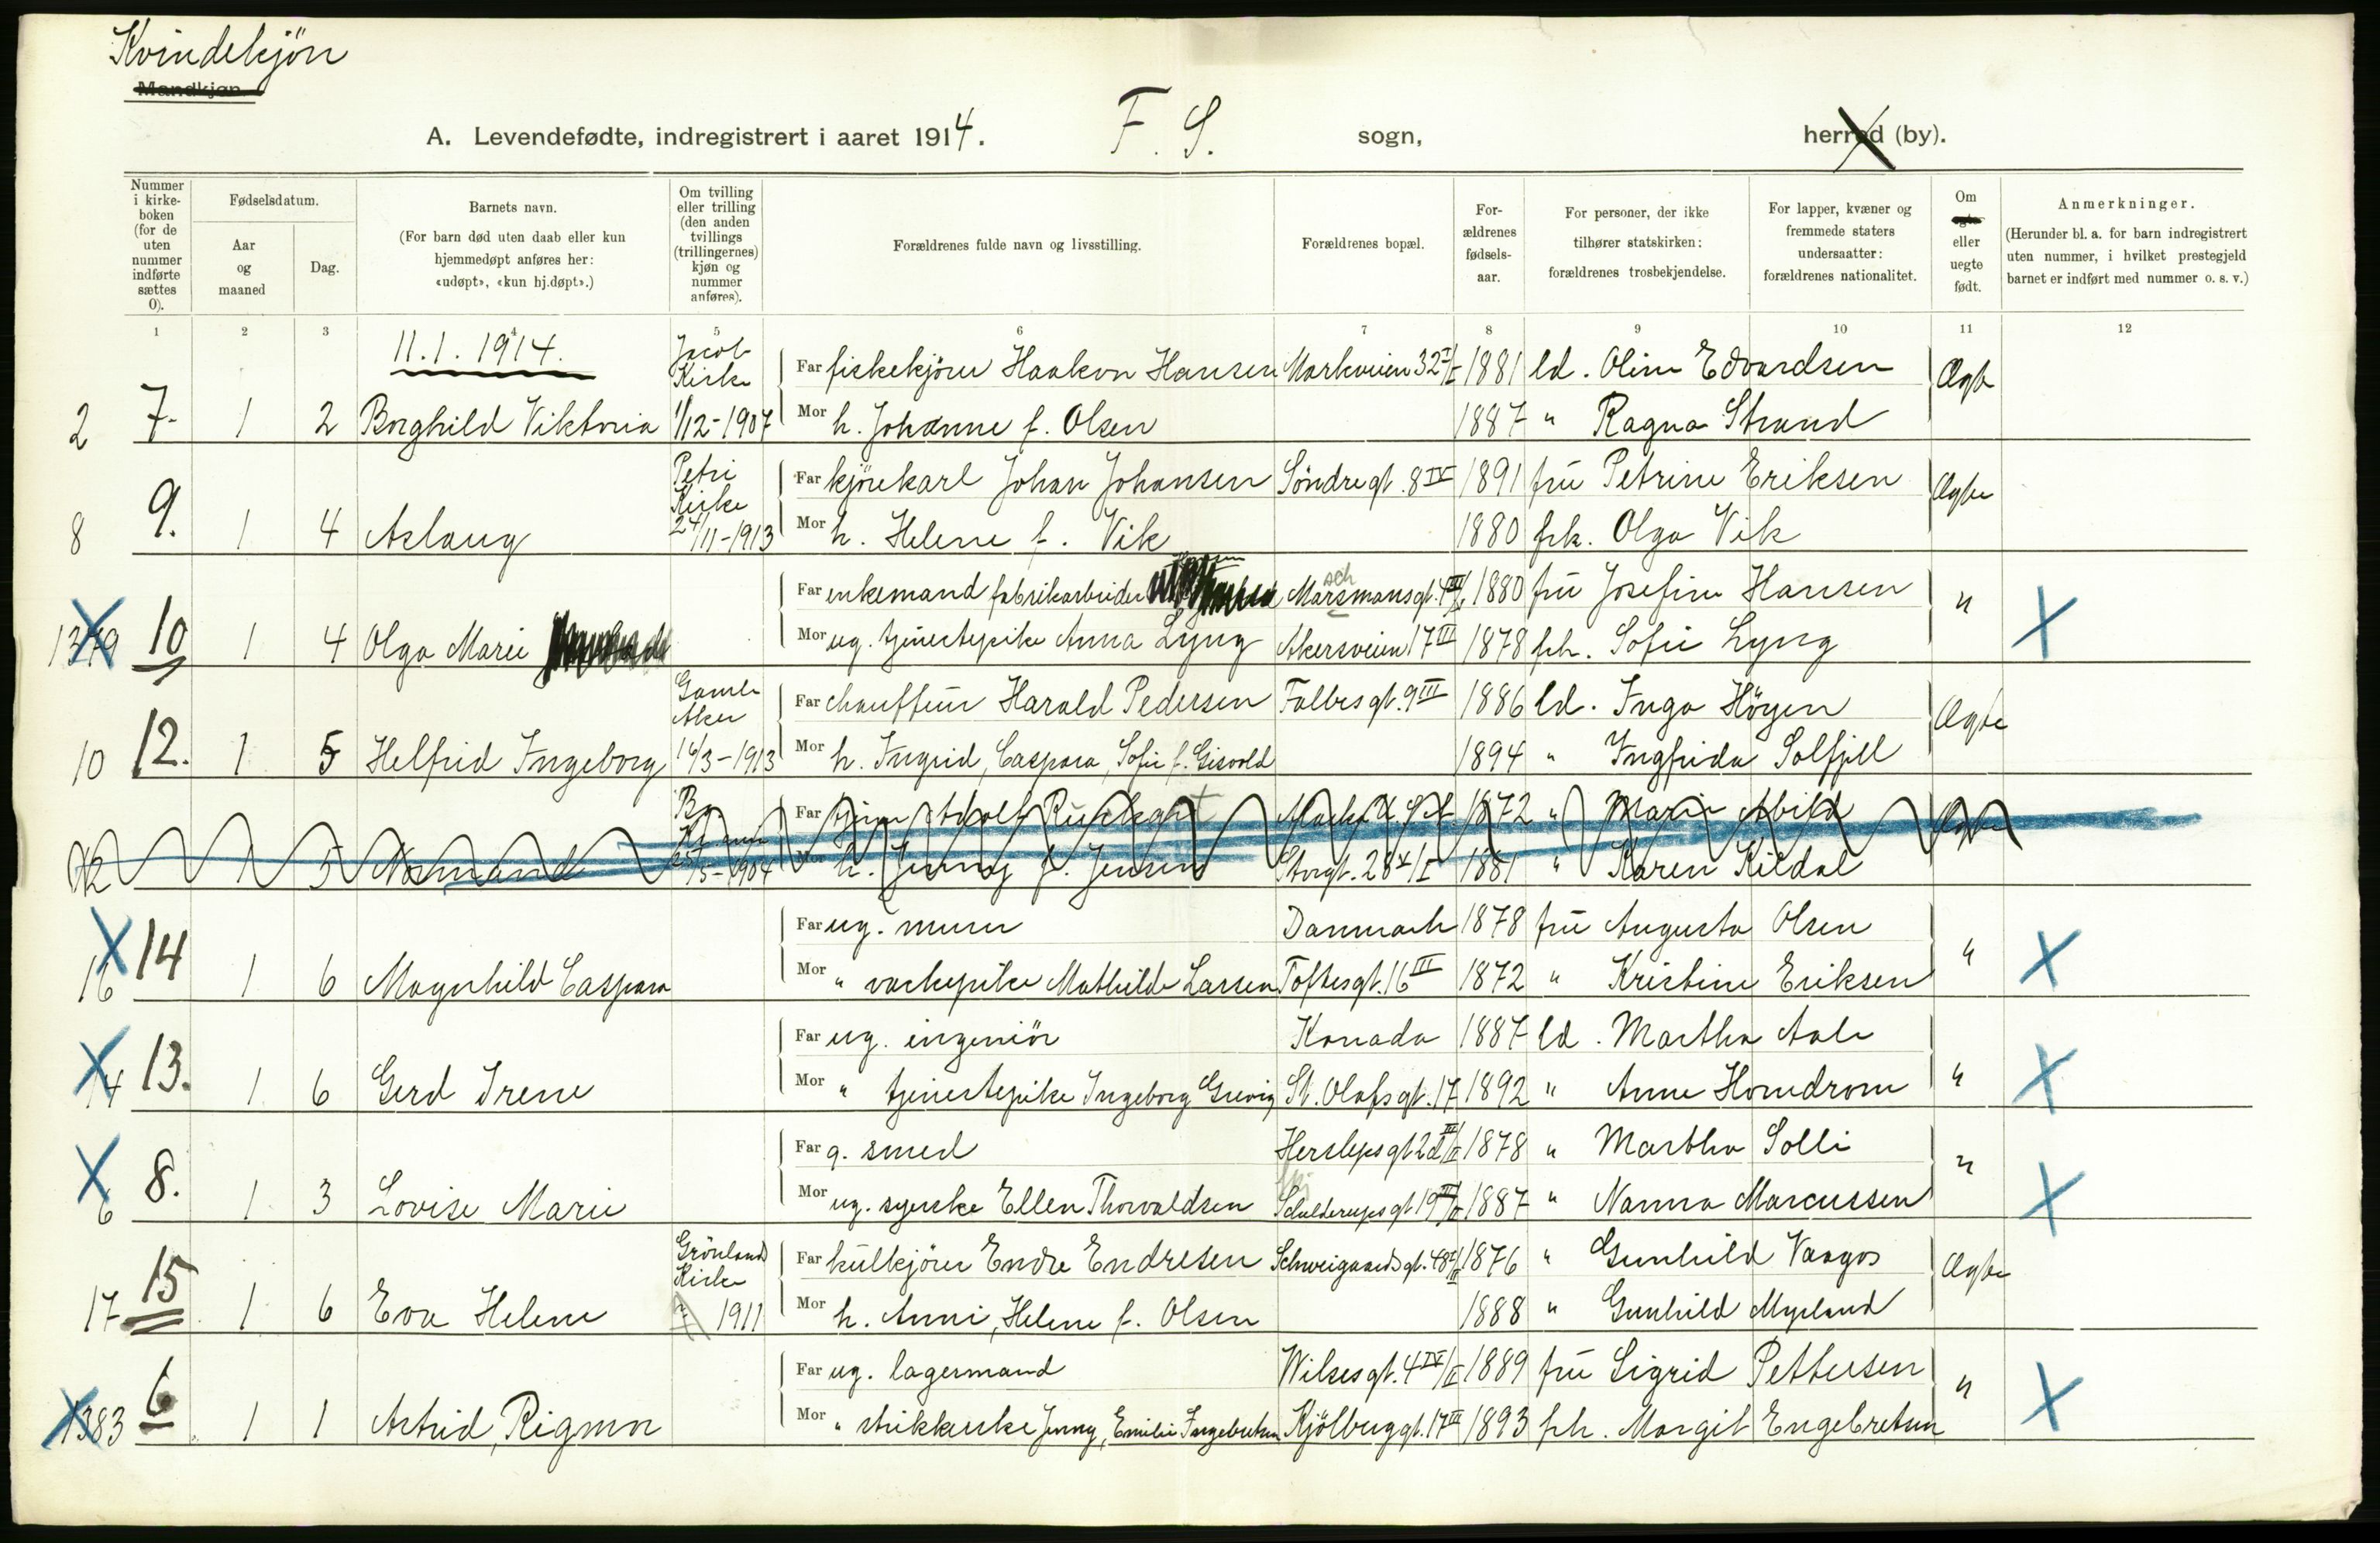 Kvindekjön
Mandkjøn.
A. Levendefødte, indregistrert i aaret 1914. F. S. sogn, herred (by).
Nummer i kirke-boken (for de uten nummer indførte sættes 0).
Fødselsdatum.
Aar og maaned
Dag.
Barnets navn.
(For barn død uten daab eller kun hjemmedøpt anføres her: «udøpt», «kun hj.døpt».)
Om tvilling eller trilling (den anden tvillings (trillingernes) kjøn og nummer anføres).
Forældrenes fulde navn og livsstilling.
Forældrenes bopæl.
For-ældrenes fødsels-aar.
For personer, der ikke tilhører statskirken: forældrenes trosbekjendelse.
For lapper, kvæner og fremmede staters undersaatter: forældrenes nationalitet.
Om ægte eller uegte født.
Anmerkninger.
(Herunder bl. a. for barn indregistrert uten nummer, i hvilket prestegjeld barnet er indført med nummer o. s. v.)
1 2 3 4 5 6 7 8 9 10 11 12
11.1.1914.
Jacob Kirke Far fiskekjörer Haakon Hansen Markveien 32 I/I 1881 ld. Oline Edvardsen Ægte
2 7 1 2 Borghild Viktoria 1/12-1907 Mor h. Johanne f. Olsen 1887 " Ragna Strand
Petri Kirke Far kjörekarl Johan Johansen Söndregt. 8 IV 1891 frü Petrine Eriksen Ægte
8 9. 1 4 Aslaug 24/11-1913 Mor h. Helene f. Vik 1880 frk. Olga Vik
Far enkemand fabrikarbeider Marsmansgt. sch 1880 frü Josefine Hansen "
1379 10 1 4 Olga Marie Mor ug. tjenestepike Anna Lyng Akersveien 17 III 1878 frk. Sofie Lyng X
Gamle Aker Far chauffeür Harald Pedersen Falbesgt. 9 III 1886 ld. Inga Höyen Ægte
10 12. 1 5 Helfrid Ingeborg 16/3-1913 Mor h. Ingrid, Caspara, Sofie f. Gisvold 1894 " Ingfrida Solfjell
Far Adolf 1872 " Marie Abild Ægte
12 1 5 Normand 25/5-1904 Mor h. Jenny f. Jensen Storgt. 28 1881 " Karen Kildal
Far ug. murer Danmark 1878 frü Augusta Olsen "
16 14 1 6 Magnhild Caspara Mor " vaskepike Mathilde Larsen Toftesgt. 16 III 1872 " Kristine Eriksen X
Far ug. ingeniör Kanada 1887 ld. Martha Aale "
14 13. 1 6 Gerd Irene Mor " tjenestepike Ingeborg Grevig St. Olafsgt. 17 1892 " Anne Homdrom X
Far g. smed Herslepsgt 2d 1878 " Martha Solli "
6 8. 1 3 Lovise Marie Mor ug. syerske Ellen Thorvaldsen Schulderupsgt 19 1887 " Nanna Marcussen X
Grönlands Kirke Far külkjörer Endre Endresen Schweigaardsgt. 48 1876 " Gunhild Vaagos Ægte
17 15 1 6 Eva Helene 1911 Mor h. Anni, Helene f. Olsen 1888 " Gunhild Myrland
Far ug. lagermand Wilsesgt. 4 IV/II 1889 frü Sigrid Pettersen "
1383 6 1 1 Astrid, Rigmor Mor " strikkerske Jenny, Emilie Ingebretsen Kjölberggt. 17 III 1893 frk. Margit Engebretsen X